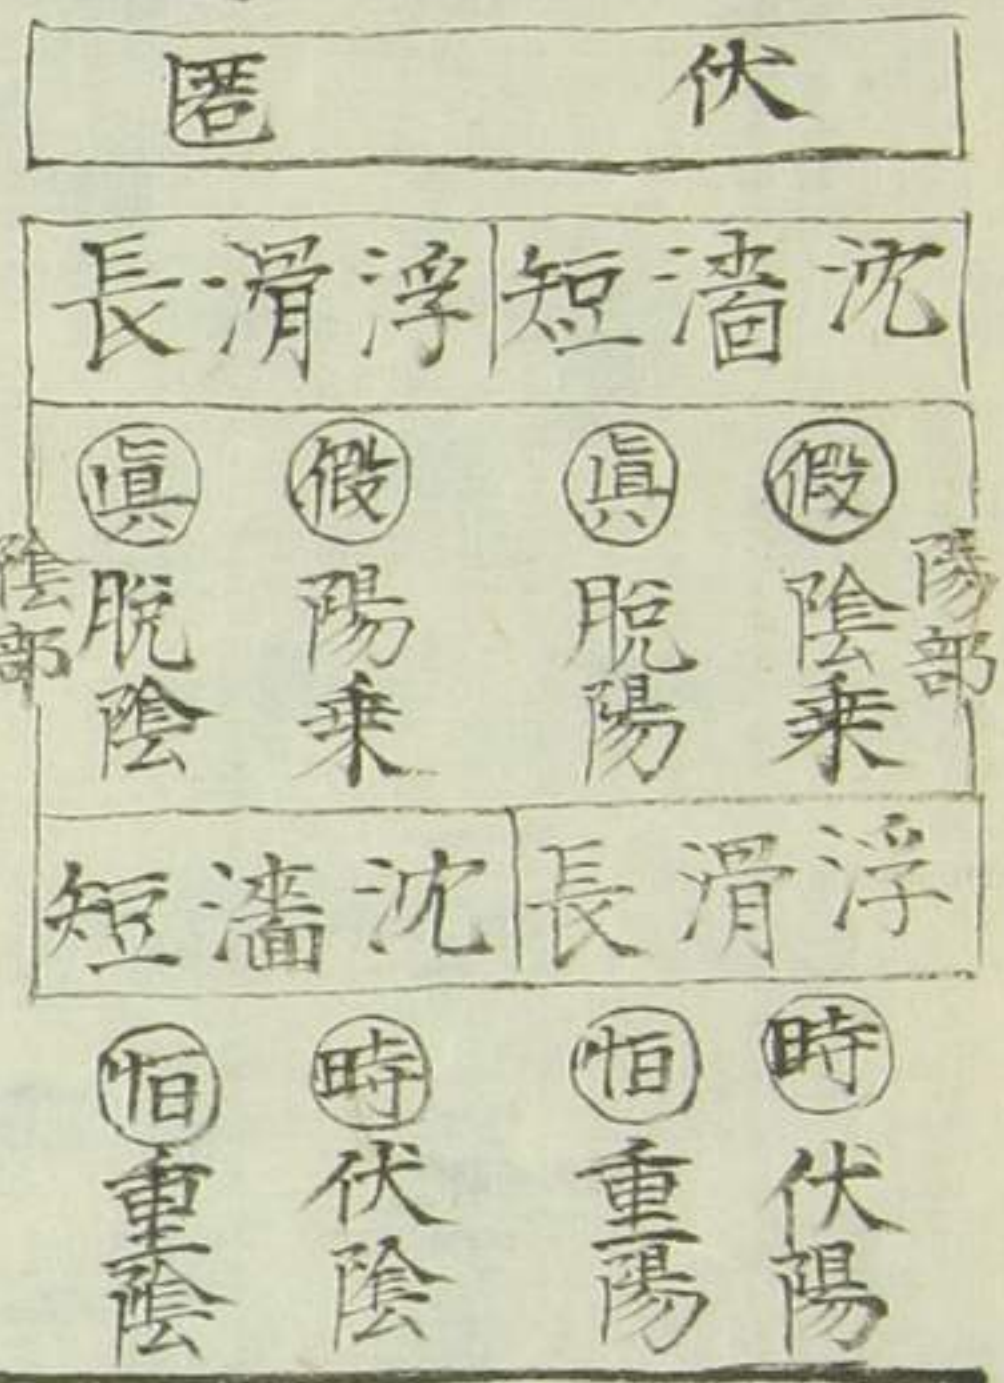 伏匿
沈濇短
浮滑長
陽部
假陰乗
眞脫陽
假陽乗
眞脫陰
陰部
浮滑長
沈濇短
時伏陽
恒重陽
時伏陰
恒重陰